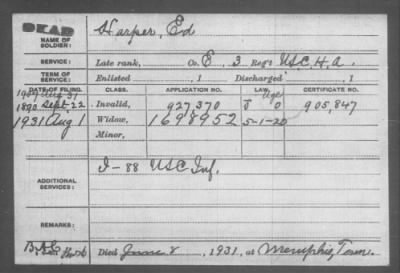 DEAD
NAME OF SOLDIER: Harper, Ed
SERVICE: Late rank, Co. E, 3 Reg't U.S.C.H.A.
TERM OF SERVICE: Enlisted , 1 Discharged , 1
DATE OF FILING. CLASS. APPLICATION NO. LAW. CERTIFICATE NO.
1907 Aug 31 Age
1890 Sept-22 Invalid, 927,370 J O 905,847
1931 Aug 1 Widow, 1698952 5-1-20
Minor,
ADDITIONAL SERVICES: I-88 USC Inf.
REMARKS:
Died June 8, 1931, at Memphis, Tenn.